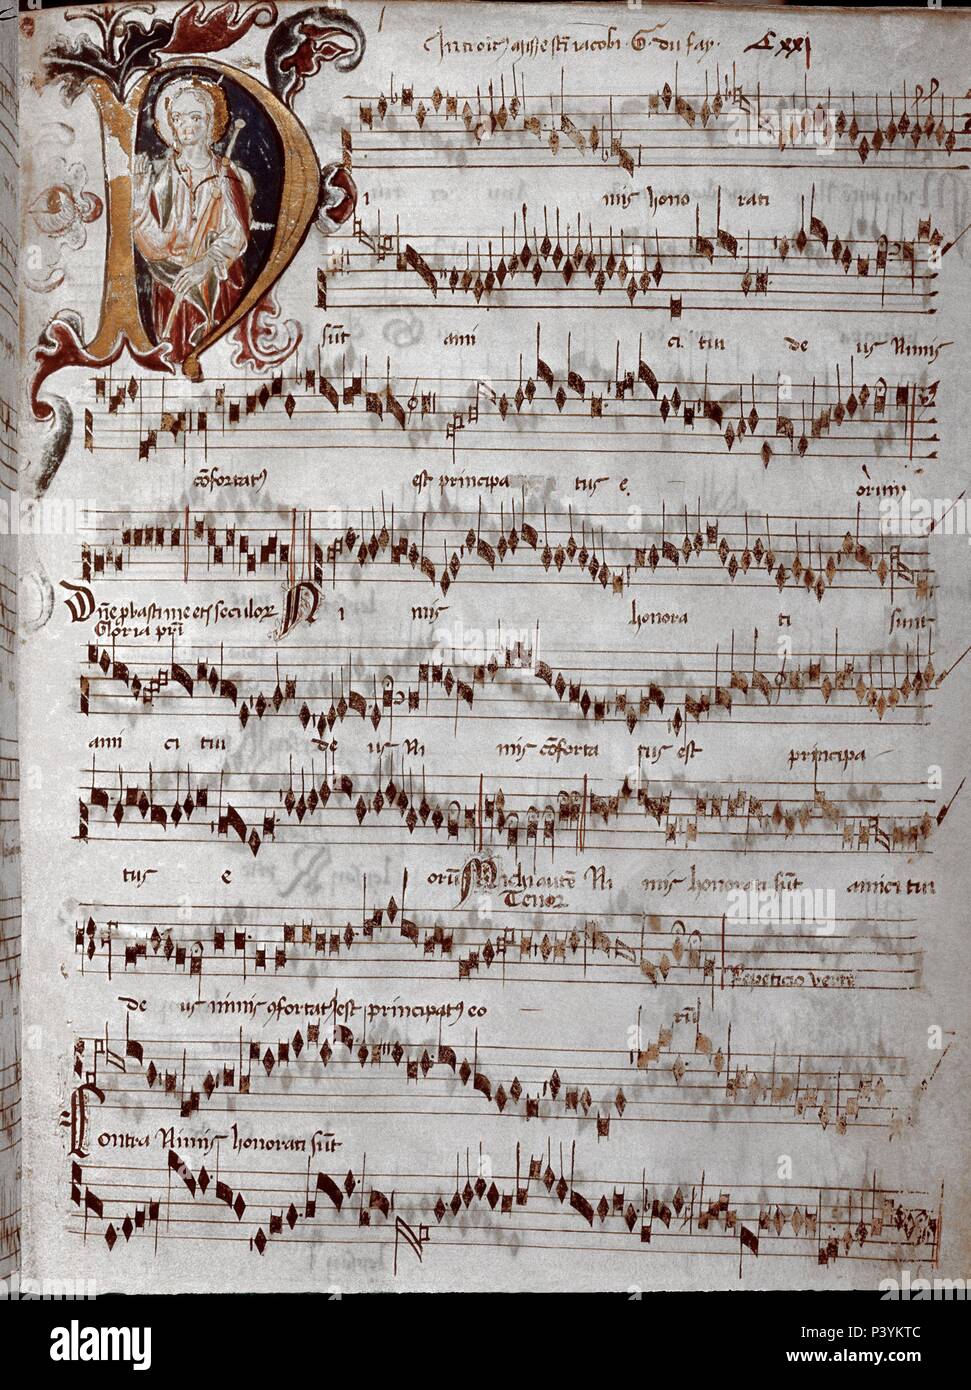 Introit9 misse scti iacobi · G · du fay · Cxxj
i mis hono rati
sūt ami ci tui de us Nimis
cōfortat9 est principa tus e orum
Dn̄e pbasti me et seculor N i mis honora ti sunt
Gloria pri
ami ci tui de us Ni mis cōforta tus est principa
tus e orū Michi autē Ni mis honorati sūt amici tui
Tenor
Repeticio verte
de us nimis 9fortat9 est principat9 eo rū
Contra Nimis honorati sūt
alamy
Image ID: P3YKTC
www.alamy.com